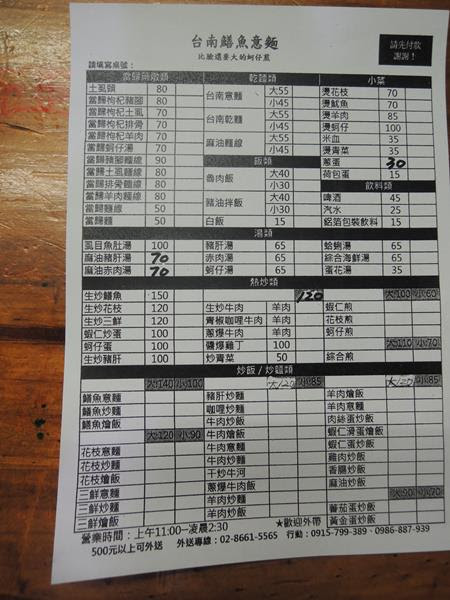 台南鱔魚意麵
比臉還要大的蚵仔煎
請先付款
謝謝！
請填寫桌號：
當歸燉類
土虱頭 80
當歸枸杞豬腳 80
當歸枸杞土虱 70
當歸枸杞排骨 70
當歸枸杞羊肉 70
當歸蚵仔湯 70
當歸豬腳麵線 90
當歸土虱麵線 80
當歸排骨麵線 80
當歸羊肉麵線 80
當歸麵線 50
當歸麵 50
乾麵類
台南意麵 大55 小45
台南乾麵 大55 小45
麻油麵線 大55 小45
飯類
魯肉飯 大40 小30
豬油拌飯 大40 小30
白飯 15
小菜
燙花枝 70
燙魷魚 70
燙羊肉 85
燙蚵仔 100
米血 35
燙青菜 35
蔥蛋 30
荷包蛋 15
飲料類
啤酒 45
汽水 25
鋁箔包裝飲料 15
湯類
虱目魚肚湯 100 豬肝湯 65 蛤蜊湯 65
麻油豬肝湯 70 赤肉湯 65 綜合海鮮湯 65
麻油赤肉湯 70 蚵仔湯 65 蛋花湯 35
熱炒類
生炒鱔魚 150 120 大100 小60
生炒花枝 120 生炒牛肉 羊肉 蝦仁煎
生炒三鮮 120 青椒咖哩牛肉 羊肉 花枝煎
蝦仁炒蛋 100 蔥爆牛肉 羊肉 蚵仔煎
蚵仔蛋 100 醬爆雞丁 100 大110 小70
生炒豬肝 100 炒青菜 50 綜合煎
炒飯 / 炒麵類
大140 小100 大120 小85 大120 小85
鱔魚意麵 豬肝炒麵 羊肉燴飯
鱔魚炒麵 咖哩炒麵 羊肉意麵
鱔魚燴飯 牛肉炒飯 肉絲蛋炒飯
大120 小90 牛肉燴飯 蝦仁滑蛋燴飯
花枝意麵 牛肉意麵 蝦仁蛋炒飯
花枝炒麵 牛肉炒麵 雞肉炒飯
花枝燴飯 干炒牛河 香腸炒飯
三鮮意麵 蔥爆牛肉燴飯 麻油炒飯
三鮮炒麵 羊肉炒麵 大90 小70
三鮮燴飯 羊肉炒飯 蕃茄蛋炒飯
黃金蛋炒飯
營業時間：上午11:00—凌晨2:30 ★歡迎外帶
500元以上可外送 外送專線：02-8661-5565 行動：0915-799-389、0986-887-939